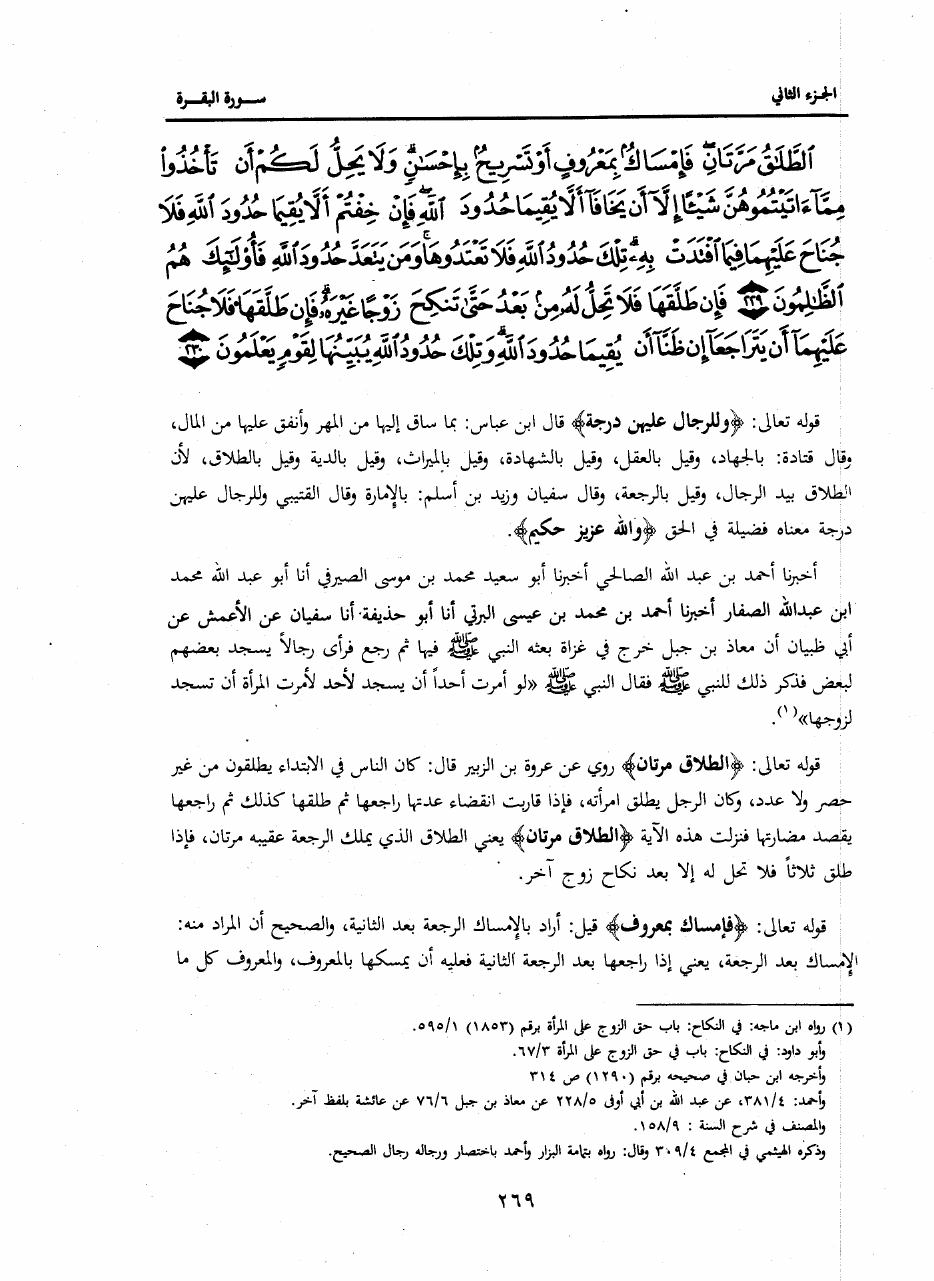 الجزء الثاني
سورة البقرة
ٱلطَّلَٰقُ مَرَّتَانِ ۖ فَإِمْسَاكٌۢ بِمَعْرُوفٍ أَوْ تَسْرِيحٌۢ بِإِحْسَٰنٍ ۗ وَلَا يَحِلُّ لَكُمْ أَن تَأْخُذُوا۟
مِمَّآ ءَاتَيْتُمُوهُنَّ شَيْـًٔا إِلَّآ أَن يَخَافَآ أَلَّا يُقِيمَا حُدُودَ ٱللَّهِ ۖ فَإِنْ خِفْتُمْ أَلَّا يُقِيمَا حُدُودَ ٱللَّهِ فَلَا
جُنَاحَ عَلَيْهِمَا فِيمَا ٱفْتَدَتْ بِهِۦ ۗ تِلْكَ حُدُودُ ٱللَّهِ فَلَا تَعْتَدُوهَا ۚ وَمَن يَتَعَدَّ حُدُودَ ٱللَّهِ فَأُو۟لَٰٓئِكَ هُمُ
ٱلظَّٰلِمُونَ ٢٢٩ فَإِن طَلَّقَهَا فَلَا تَحِلُّ لَهُۥ مِنۢ بَعْدُ حَتَّىٰ تَنكِحَ زَوْجًا غَيْرَهُۥ ۗ فَإِن طَلَّقَهَا فَلَا جُنَاحَ
عَلَيْهِمَآ أَن يَتَرَاجَعَآ إِن ظَنَّآ أَن يُقِيمَا حُدُودَ ٱللَّهِ ۗ وَتِلْكَ حُدُودُ ٱللَّهِ يُبَيِّنُهَا لِقَوْمٍ يَعْلَمُونَ ٢٣٠
قوله تعالى: ﴿وللرجال عليهن درجة﴾ قال ابن عباس: بما ساق إليها من المهر وأنفق عليها من المال،
وقال قتادة: بالجهاد، وقيل بالعقل، وقيل بالشهادة، وقيل بالميراث، وقيل بالدية وقيل بالطلاق، لأن
الطلاق بيد الرجال، وقيل بالرجعة، وقال سفيان وزيد بن أسلم: بالإمارة وقال القتيبي وللرجال عليهن
درجة معناه فضيلة في الحق ﴿والله عزيز حكيم﴾.
أخبرنا أحمد بن عبد الله الصالحي أخبرنا أبو سعيد محمد بن موسى الصيرفي أنا أبو عبد الله محمد
ابن عبدالله الصفار أخبرنا أحمد بن محمد بن عيسى البرتي أنا أبو حذيفة أنا سفيان عن الأعمش عن
أبي ظبيان أن معاذ بن جبل خرج في غزاة بعثه النبي ﷺ فيها ثم رجع فرأى رجالاً يسجد بعضهم
لبعض فذكر ذلك للنبي ﷺ فقال النبي ﷺ «لو أمرت أحداً أن يسجد لأحد لأمرت المرأة أن تسجد
لزوجها»(١).
قوله تعالى: ﴿الطلاق مرتان﴾ روي عن عروة بن الزبير قال: كان الناس في الابتداء يطلقون من غير
حصر ولا عدد، وكان الرجل يطلق امرأته، فإذا قاربت انقضاء عدتها راجعها ثم طلقها كذلك ثم راجعها
يقصد مضارتها فنزلت هذه الآية ﴿الطلاق مرتان﴾ يعني الطلاق الذي يملك الرجعة عقيبه مرتان، فإذا
طلق ثلاثاً فلا تحل له إلا بعد نكاح زوج آخر.
قوله تعالى: ﴿فإمساك بمعروف﴾ قيل: أراد بالإمساك الرجعة بعد الثانية، والصحيح أن المراد منه:
الإمساك بعد الرجعة، يعني إذا راجعها بعد الرجعة الثانية فعليه أن يمسكها بالمعروف، والمعروف كل ما
(١) رواه ابن ماجه: في النكاح: باب حق الزوج على المرأة برقم (١٨٥٣) ٥٩٥/١.
وأبو داود: في النكاح: باب في حق الزوج على المرأة ٦٧/٣.
وأخرجه ابن حبان في صحيحه برقم (١٢٩٠) ص ٣١٤
وأحمد: ٣٨١/٤، عن عبد الله بن أبي أوفى ٢٢٨/٥ عن معاذ بن جبل ٧٦/٦ عن عائشة بلفظ آخر.
والمصنف في شرح السنة : ١٥٨/٩.
وذكره الهيثمي في المجمع ٣٠٩/٤ وقال: رواه بتمامة البزار وأحمد باختصار ورجاله رجال الصحيح.
٢٦٩